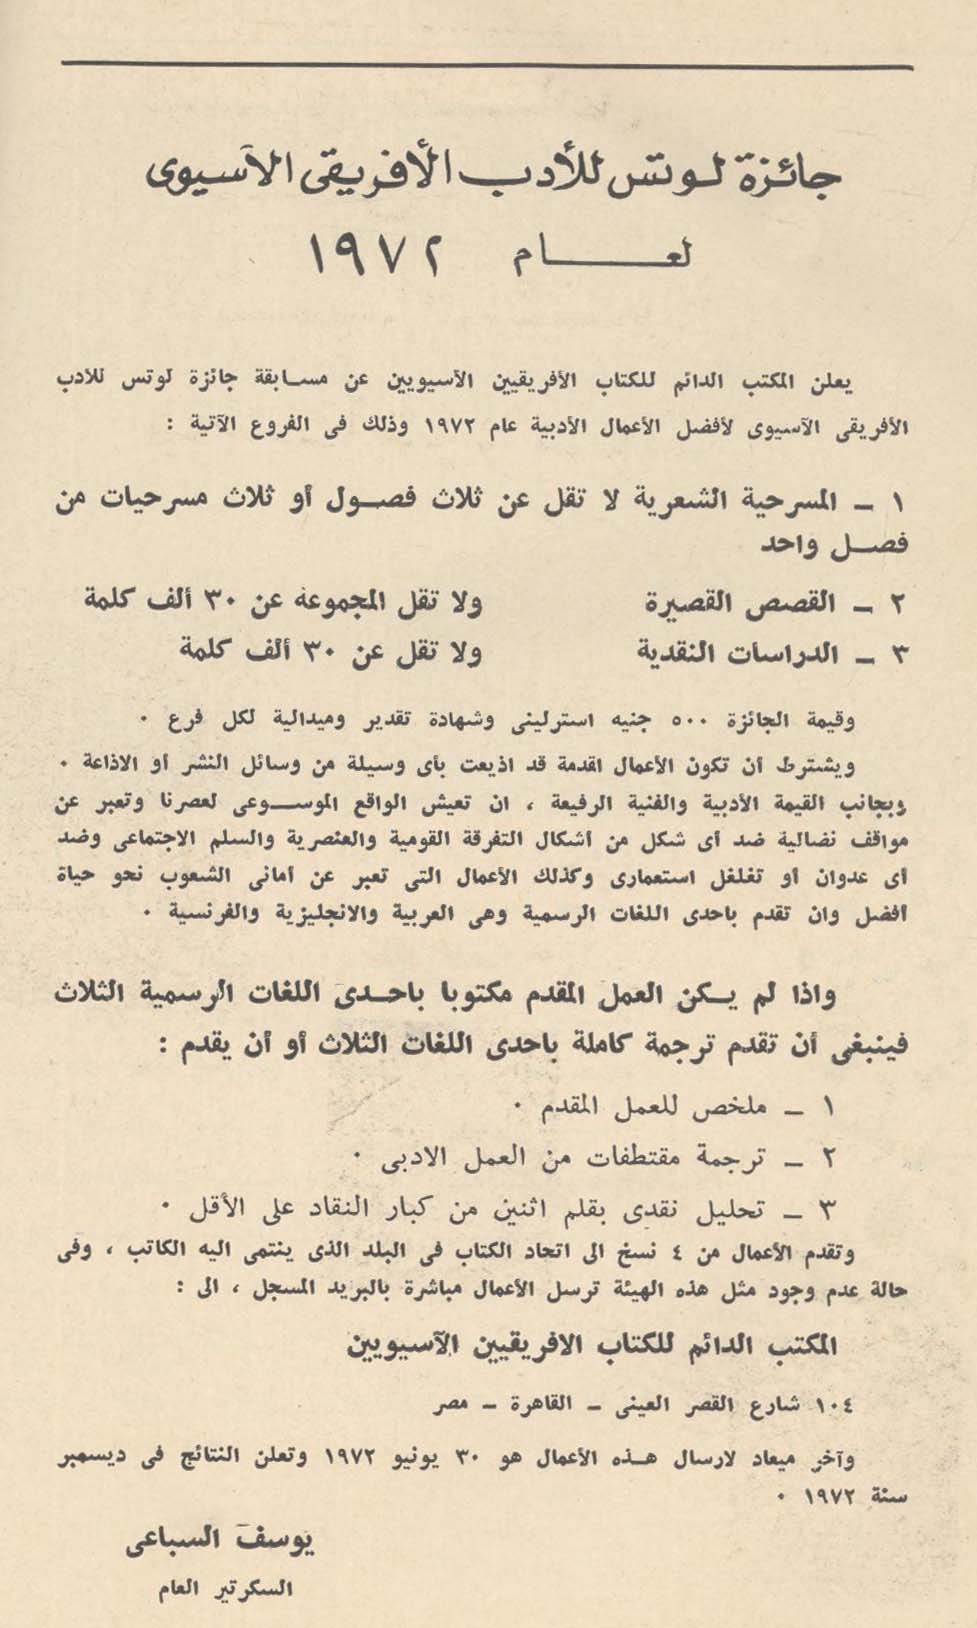 جائزة لوتس للأدب الأفريقى الآسيوى
لعام ١٩٧٢
يعلن المكتب الدائم للكتاب الأفريقيين الآسيويين عن مسابقة جائزة لوتس للأدب
الأفريقى الآسيوى لأفضل الأعمال الأدبية عام ١٩٧٢ وذلك فى الفروع الآتية :
١ – المسرحية الشعرية لا تقل عن ثلاث فصول أو ثلاث مسرحيات من
فصل واحد
٢ – القصص القصيرة ولا تقل المجموعة عن ٣٠ ألف كلمة
٣ – الدراسات النقدية ولا تقل عن ٣٠ ألف كلمة
وقيمة الجائزة ٥٠٠ جنيه استرلينى وشهادة تقدير وميدالية لكل فرع ٠
ويشترط أن تكون الأعمال اقدمة قد اذيعت بأى وسيلة من وسائل النشر أو الاذاعة ٠
وبجانب القيمة الأدبية والفنية الرفيعة ، ان تعيش الواقع الموسوعى لعصرنا وتعبر عن
مواقف نضالية ضد أى شكل من أشكال التفرقة القومية والعنصرية والسلم الاجتماعى وضد
أى عدوان أو تغلغل استعمارى وكذلك الأعمال التى تعبر عن أمانى الشعوب نحو حياة
أفضل وان تقدم باحدى اللغات الرسمية وهى العربية والانجليزية والفرنسية ٠
واذا لم يكن العمل المقدم مكتوبا باحدى اللغات الرسمية الثلاث
فينبغى أن تقدم ترجمة كاملة باحدى اللغات الثلاث أو أن يقدم :
١ – ملخص للعمل المقدم ٠
٢ – ترجمة مقتطفات من العمل الادبى ٠
٣ – تحليل نقدى بقلم اثنين من كبار النقاد على الأقل ٠
وتقدم الأعمال من ٤ نسخ الى اتحاد الكتاب فى البلد الذى ينتمى اليه الكاتب ، وفى
حالة عدم وجود مثل هذه الهيئة ترسل الأعمال مباشرة بالبريد المسجل ، الى :
المكتب الدائم للكتاب الافريقيين الآسيويين
١٠٤ شارع القصر العينى – القاهرة – مصر
وآخر ميعاد لارسال هذه الأعمال هو ٣٠ يونيو ١٩٧٢ وتعلن النتائج فى ديسمبر
سنة ١٩٧٢ ٠
يوسف السباعى
السكرتير العام